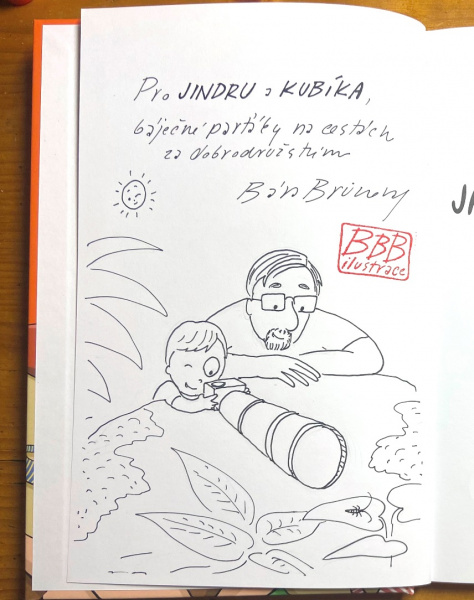 Pro JINDRU a KUBÍKA,
báječné parťáky na cestách
za dobrodružstvím
Bára Brunery
BBB
ilustrace
JI